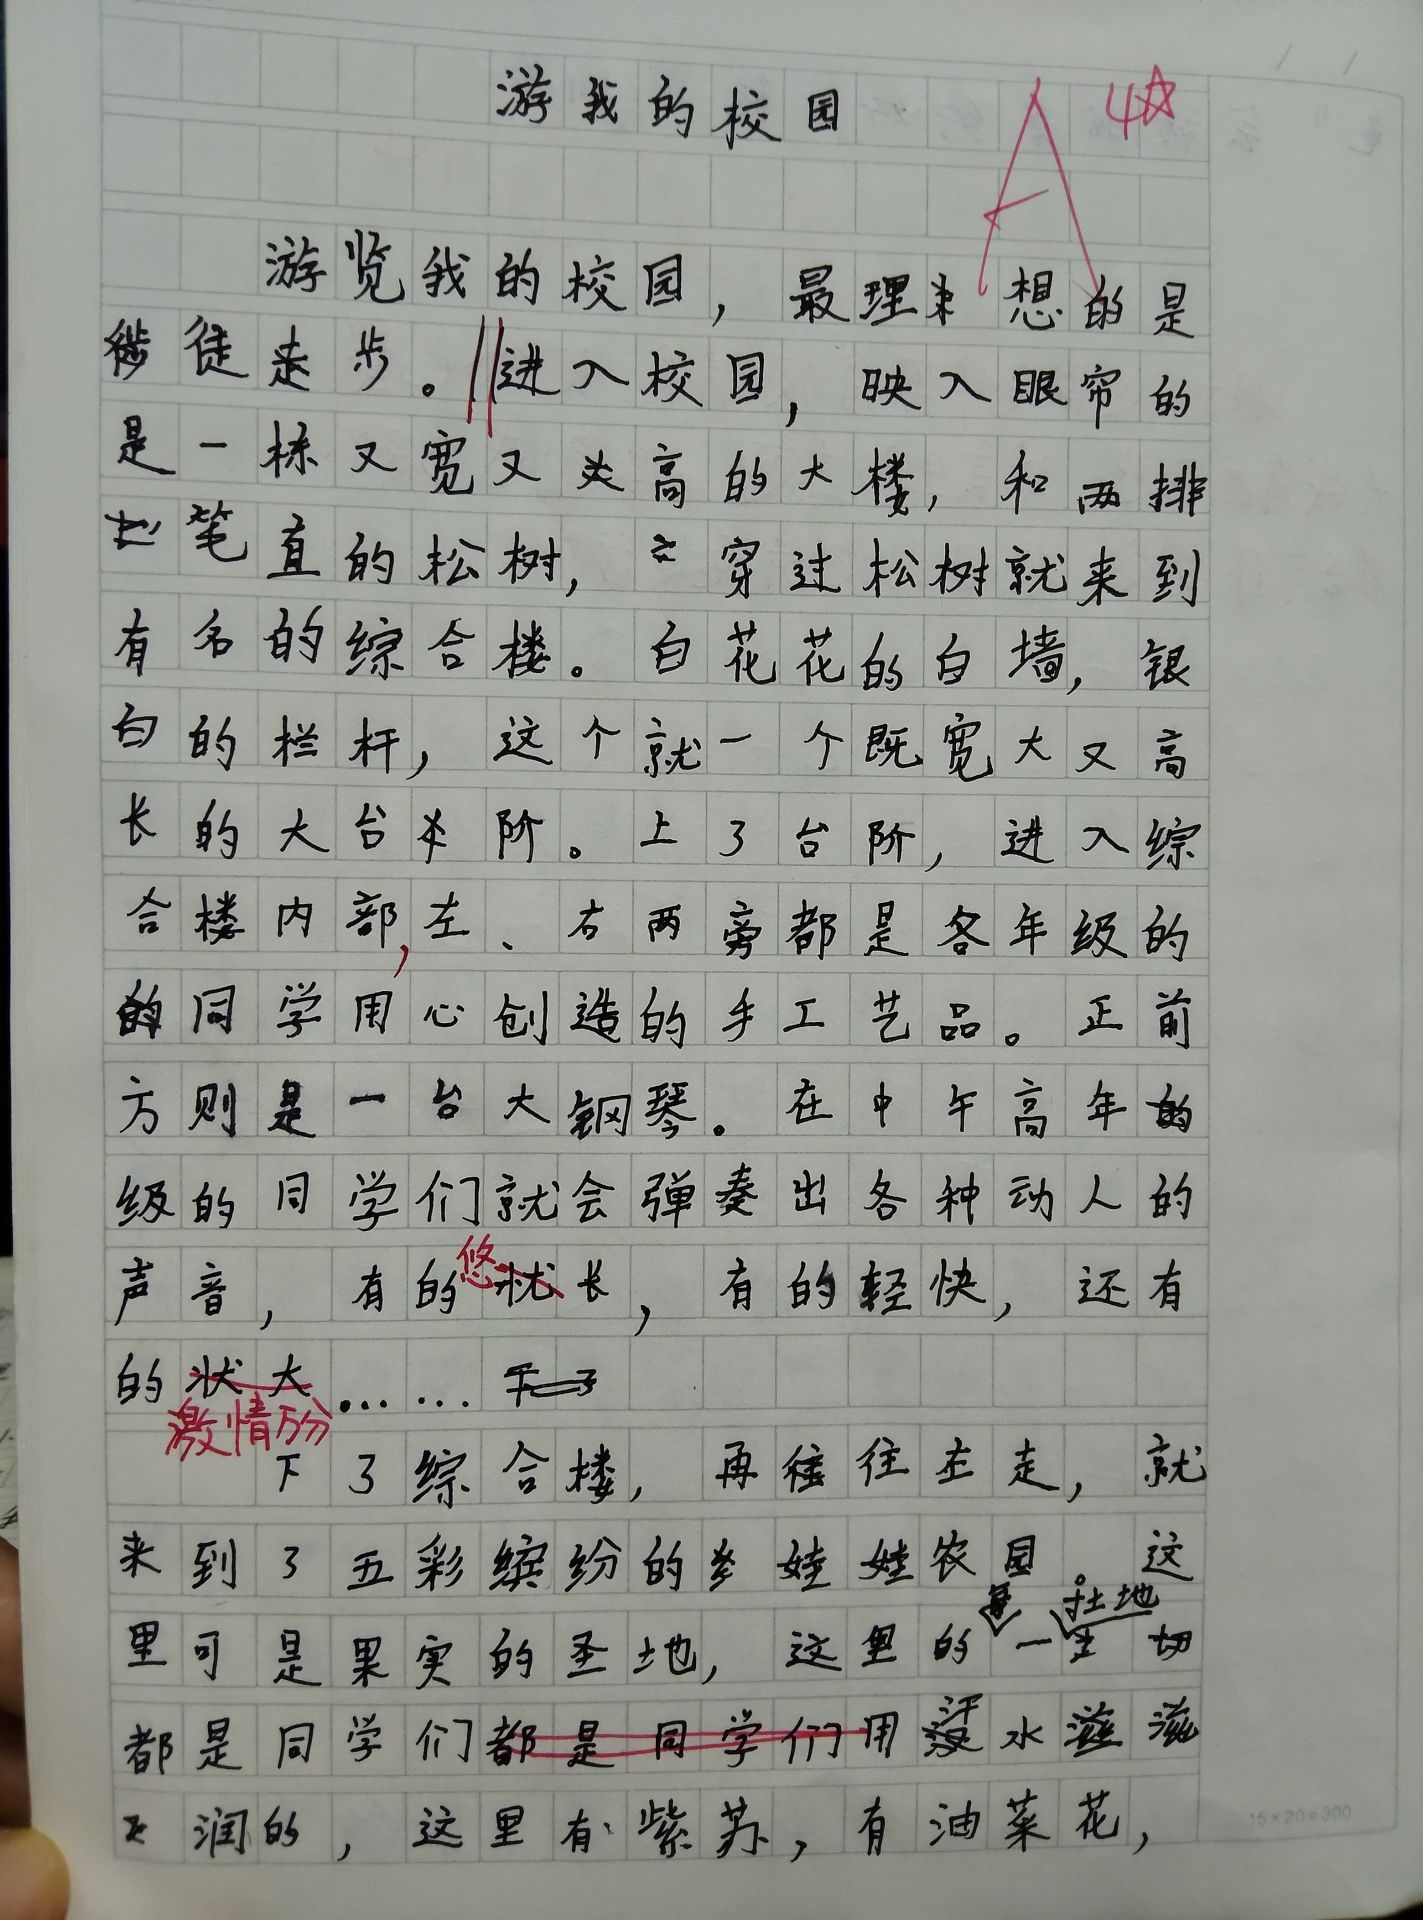 游我的校园
A 4☆
游览我的校园，最理想的是
徒走步。进入校园，映入眼帘的
是一栋又宽又高的大楼，和两排
笔直的松树，穿过松树就来到
有名的综合楼。白花花的白墙，银
白的栏杆，这个就一个既宽大又高
长的大台阶。上了台阶，进入综
合楼内部，左、右两旁都是各年级的
同学用心创造的手工艺品。正前
方则是一台大钢琴。在中午高年
级的同学们就会弹奏出各种动人的
声音，有的悠忧长，有的轻快，还有
的状大……
激情万分
下了综合楼，再往左走，就
来到了五彩缤纷的娃娃农园。这
里可是果实的圣地，这里的每一块土地
都是同学们都是同学们用汗水滋
润的，这里有紫苏，有油菜花，
15×20=300